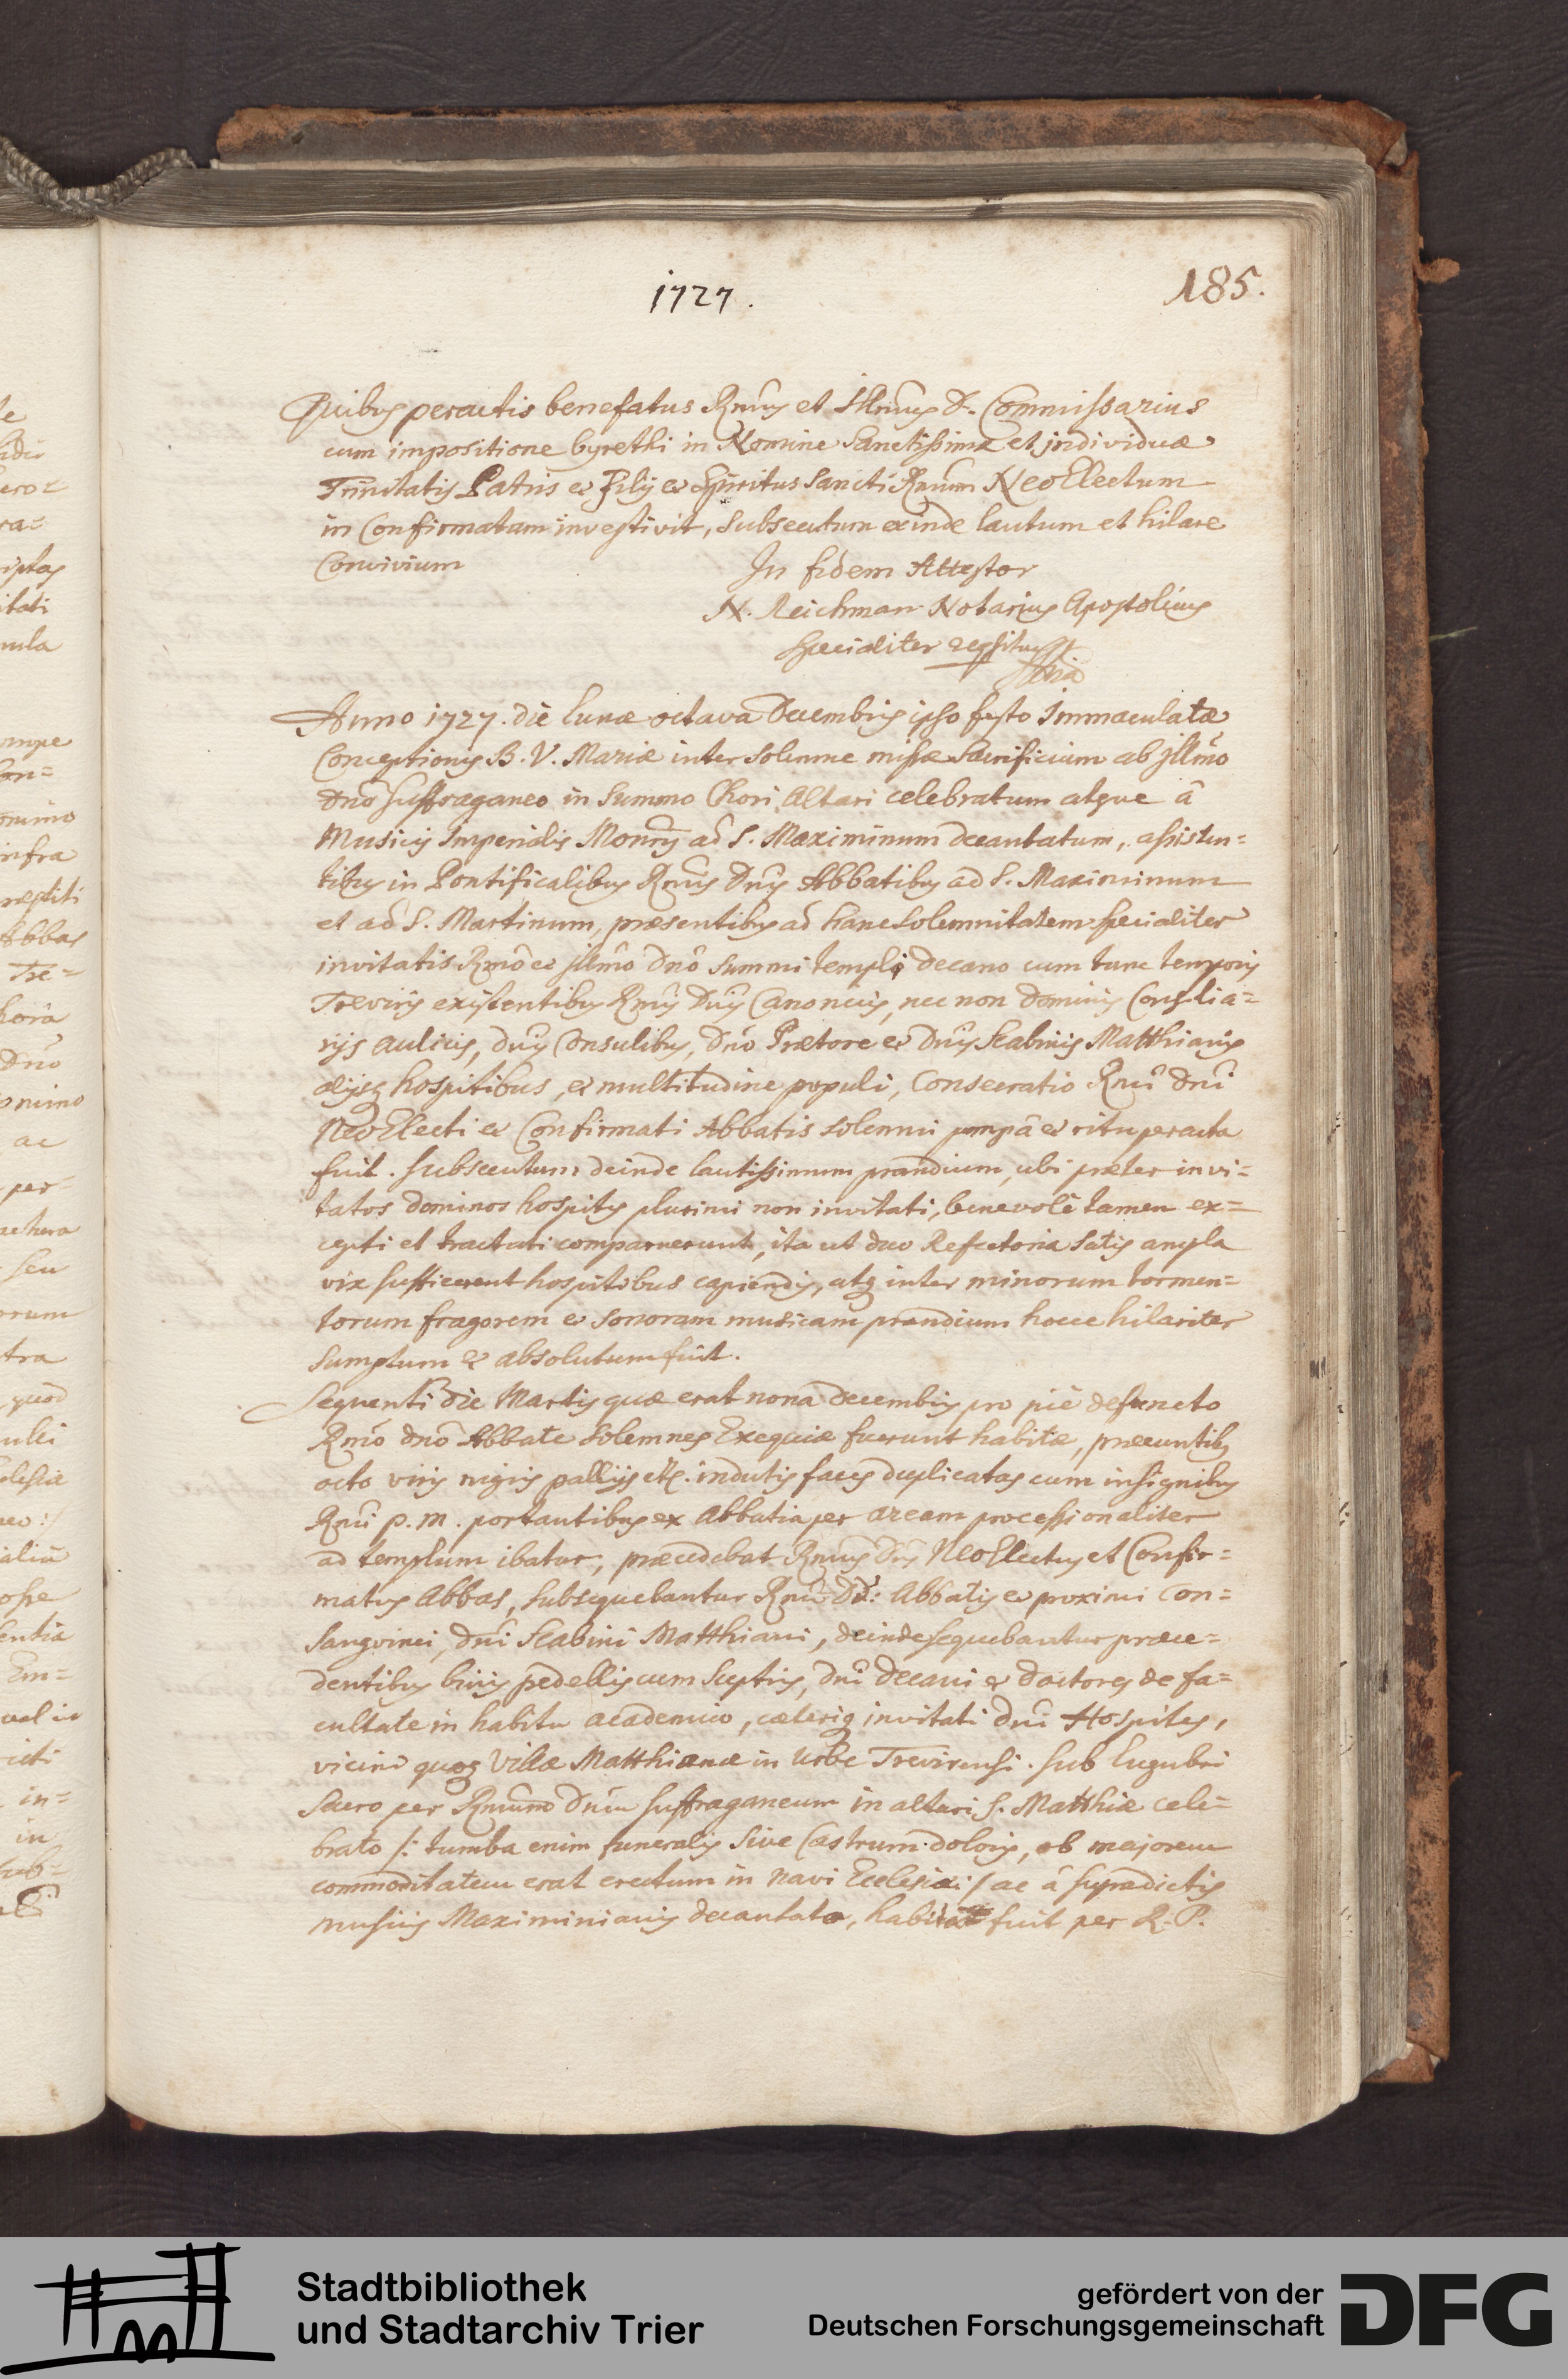 1727.
185.
Quibus peractis benefatus Rmus et Illmus D. Commissarius
cum impositione byrethi in Nomine Sanctissimæ et individuæ
Trinitatis Patris et Filij et Spiritus Sancti Rmum NeoElectum
in Confirmatum investivit, subsecutum exinde lautum et hilare
Convivium
In fidem Attestor
N. Reichman Notarius Apostolicus
specialiter reqsitus
Anno 1727. die lunæ octava Decembris ipso festo Immaculatæ
Conceptionis B. V. Mariæ inter solemne missæ Sacrificium ab jllmo
dno suffraganeo in Summo Chori Altari celebratum atque â
Musicis Imperialis Monrij ad S. Maximinum decantatum, assisten=
tibus in Pontificalibus Rmis Dnis Abbatibus ad S. Maximinum
et ad S. Martinum, præsentibus ad hanc solemnitatem specialiter
invitatis Rmo et jllmo Dno summi templi decano cum tunc temporis
Treviris existentibus Rmis Dnis Canonicis, nec non Dominis Consilia=
rijs aulicis, dnis Consulibus, dno Prætore et Dnis Scabinis Matthianis
alijsq hospitibus, et multitudine populi, Consecratio Rmi Dni
NeoElecti et Confirmati Abbatis solemni pompâ et ritu peracta
fuit. subsecutum deinde lautissimum prandium, ubi præter invi=
tatos dominos hospites plurimi non invitati, benevolè tamen ex=
cepti et tractati comparuerunt, ita ut duo Refectoria satis ampla
vix sufficerent hospitibus capiendis, atq inter minorum tormen=
torum fragorem et sonoram musicam prandium hocce hilariter
sumptum et absolutum fuit.
Sequenti die Martis quæ erat nona decembris pro piè defuncto
Rmo dno Abbate solemnes Exequiæ fuerunt habitæ, præeuntibus
octo viris nigris pallijs etc. indutis faces duplicatas cum insignibus
Rmi p. m. portantibus ex Abbatia per aream processionaliter
ad templum ibatur, præcedebat Rmus Dnus NeoElectus et Confir=
matus Abbas, subsequebantur Rmi DD: Abbatis et proximi Con=
sanguinei, dni Scabini Matthiani, deinde sequebantur præce=
dentibus binis pedellis cum sceptris, dni decani et doctores de fa=
cultate in habitu academico, cæteriq invitati dni Hospites,
vicini quoq Villæ Matthianæ in Urbe Trevirensi. sub lugubri
Sacro per Rmum Dnum suffraganeum in altari S. Matthiæ cele=
brato /: tumba enim funeralis sive Castrum doloris, ob majorem
commoditatem erat erectum in navi Ecclesiæ :/ ac â supradictis
musicis Maximinianis decantato, habita fuit per R. P.
Stadtbibliothek
und Stadtarchiv Trier
gefördert von der
Deutschen Forschungsgemeinschaft
DFG